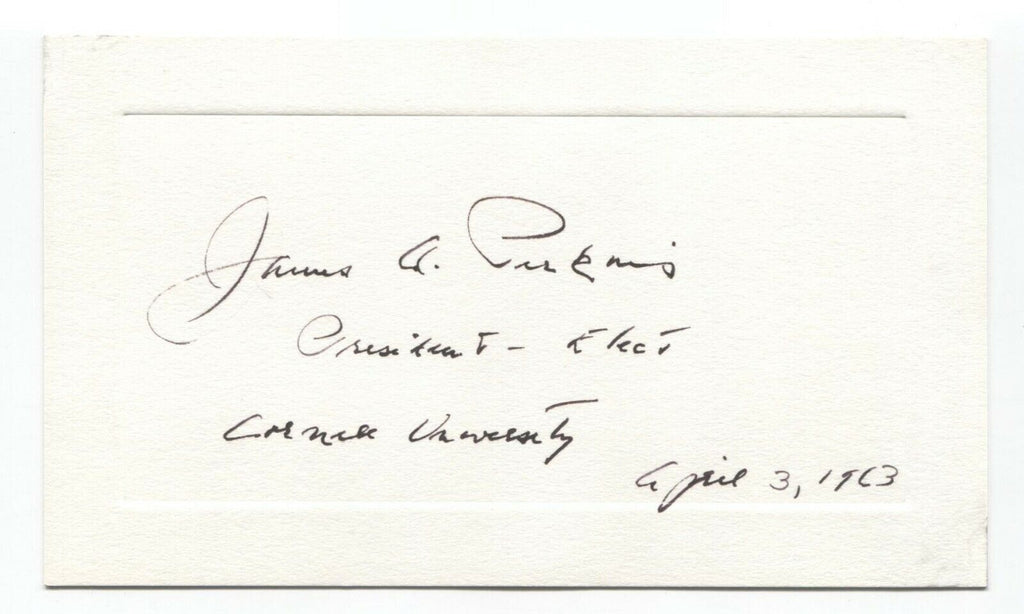 James A. Perkins
President - Elect
Cornell University
April 3, 1963